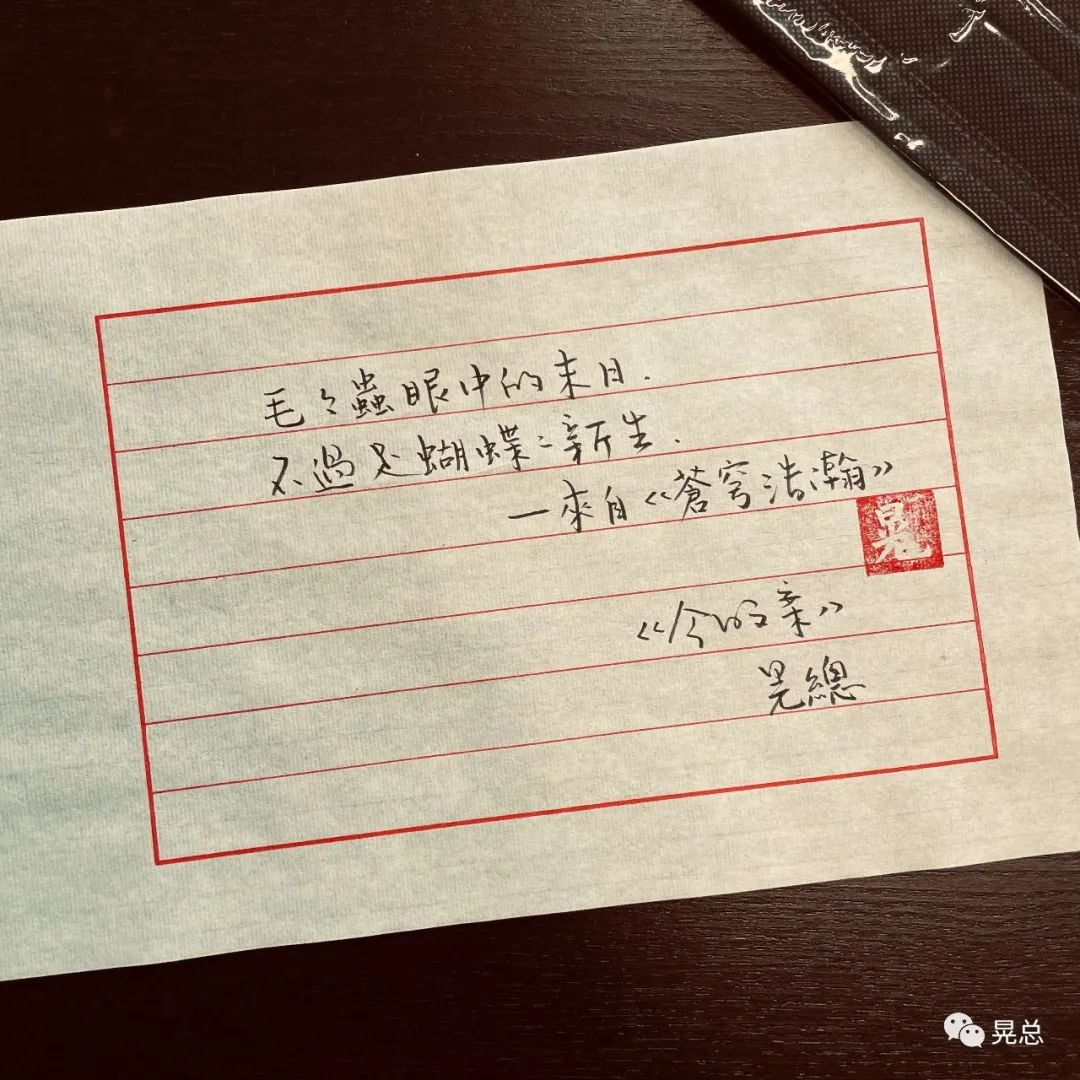 毛々蟲眼中的末日.
不過是蝴蝶二新生.
一來自《蒼穹浩瀚》
晃
《今的亲》
晃總
晃总